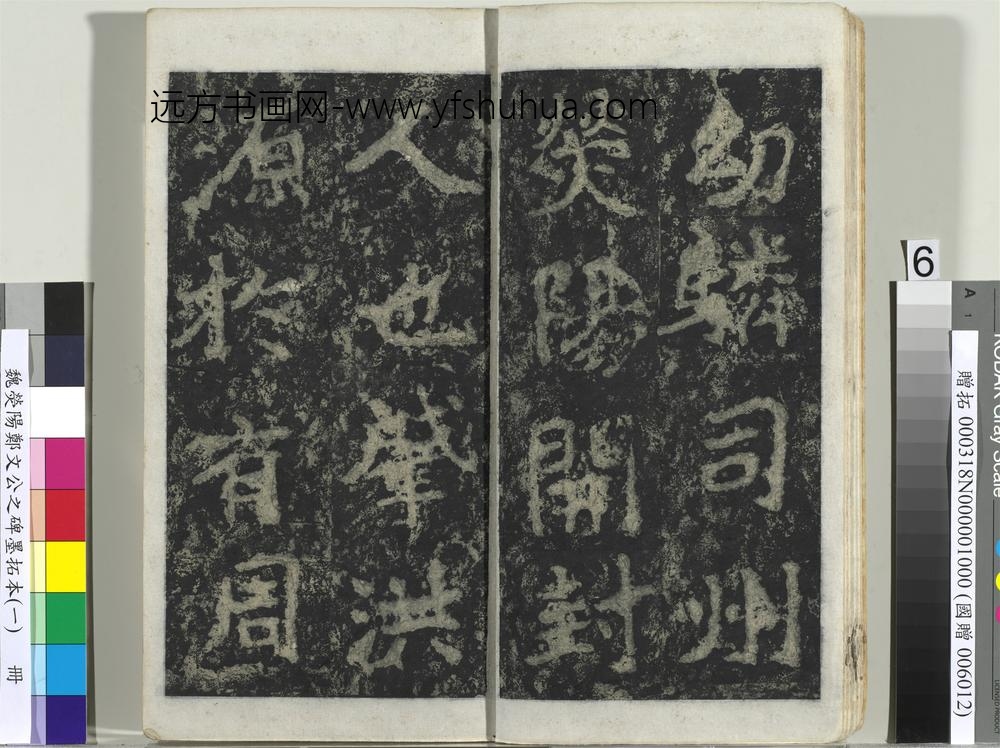 幼驎司州
滎陽開封
人也肇洪
源於有周
远方书画网-www.yfshuhua.com
魏滎陽鄭文公之碑墨拓本(一) 冊
6
A 1
贈拓 000318N000001000 (國贈 006012)